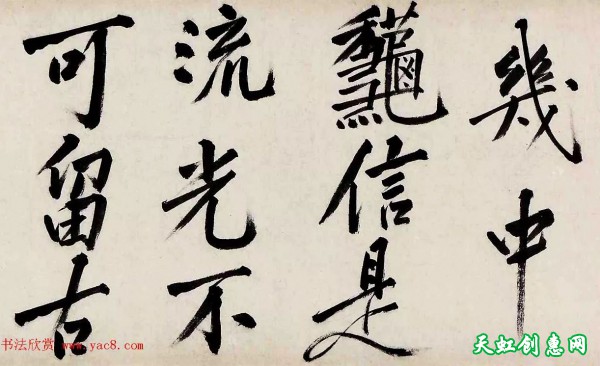 幾中
龝信是
流光不
可留古
书法欣赏 www.yac8.com
天虹创惠网